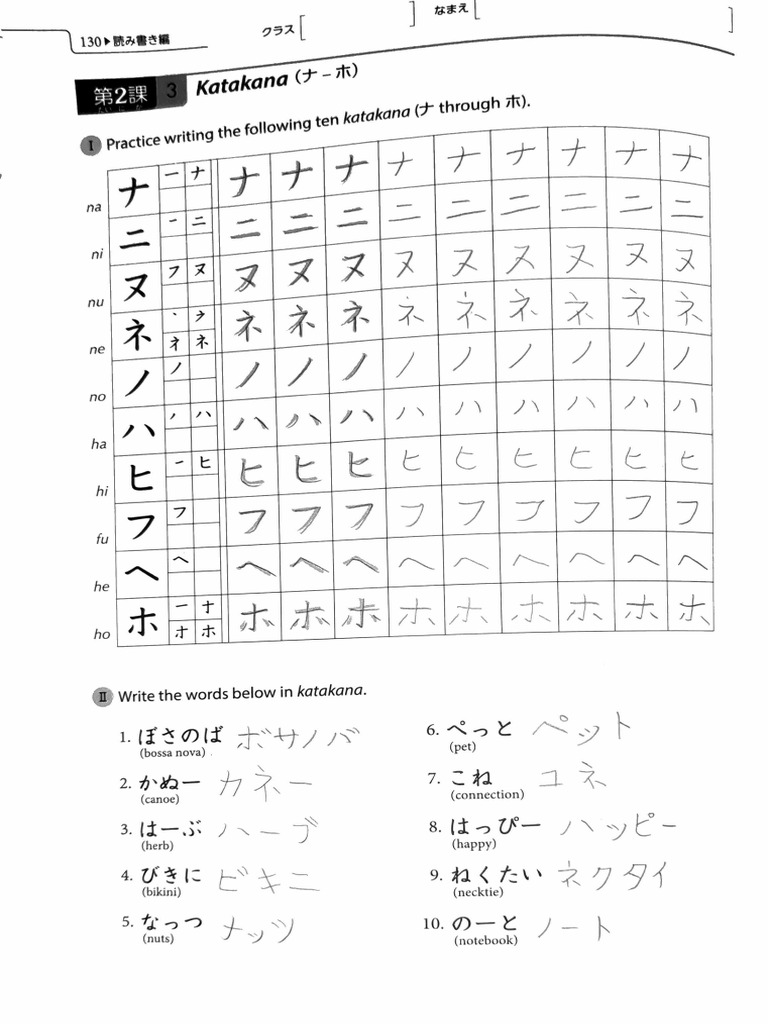 130▶読み書き編 クラス[ ] なまえ[ ]
第2課 3 Katakana (ナ – ホ)
だい に か
Ⅰ Practice writing the following ten katakana (ナ through ホ).
na ナ 一 ナ ナ ナ ナ ナ ナ ナ ナ ナ ナ
ni ニ 一 ニ ニ ニ ニ ニ ニ ニ ニ ニ ニ
nu ヌ フ ヌ ヌ ヌ ヌ ヌ ヌ ヌ ヌ ヌ ヌ
ne ネ ネ ネ ネ ネ ネ ネ ネ ネ ネ ネ
no ノ ノ ノ ノ ノ ノ ノ ノ ノ ノ ノ
ha ハ ノ ハ ハ ハ ハ ハ ハ ハ ハ ハ ハ
hi ヒ 一 ヒ ヒ ヒ ヒ ヒ ヒ ヒ ヒ ヒ ヒ
fu フ フ フ フ フ フ フ フ フ フ フ
he ヘ ヘ ヘ ヘ ヘ ヘ ヘ ヘ ヘ ヘ ヘ
ho ホ 一 ナ オ ホ ホ ホ ホ ホ ホ ホ ホ ホ ホ
Ⅱ Write the words below in katakana.
1. ぼさのば ボサノバ
(bossa nova)
2. かぬー カネー
(canoe)
3. はーぶ ハーブ
(herb)
4. びきに ビキニ
(bikini)
5. なっつ ナッツ
(nuts)
6. ぺっと ペット
(pet)
7. こね コネ
(connection)
8. はっぴー ハッピー
(happy)
9. ねくたい ネクタイ
(necktie)
10. のーと ノート
(notebook)